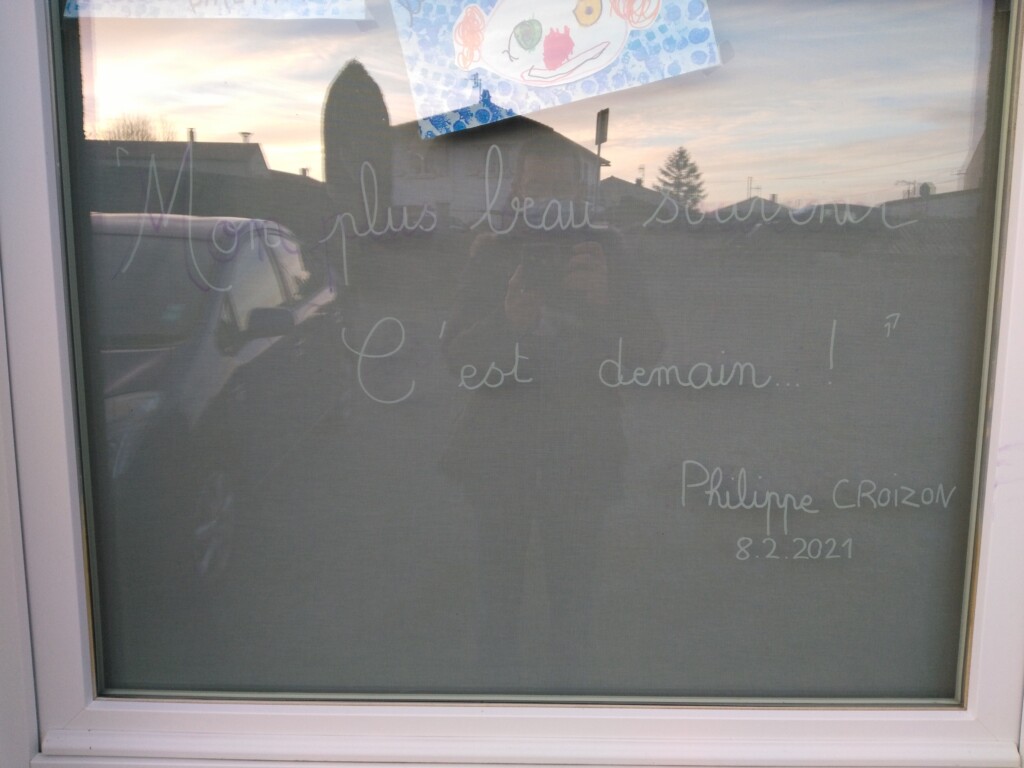 " Mon plus beau souvenir
C'est demain...! "
Philippe CROIZON
8.2.2021